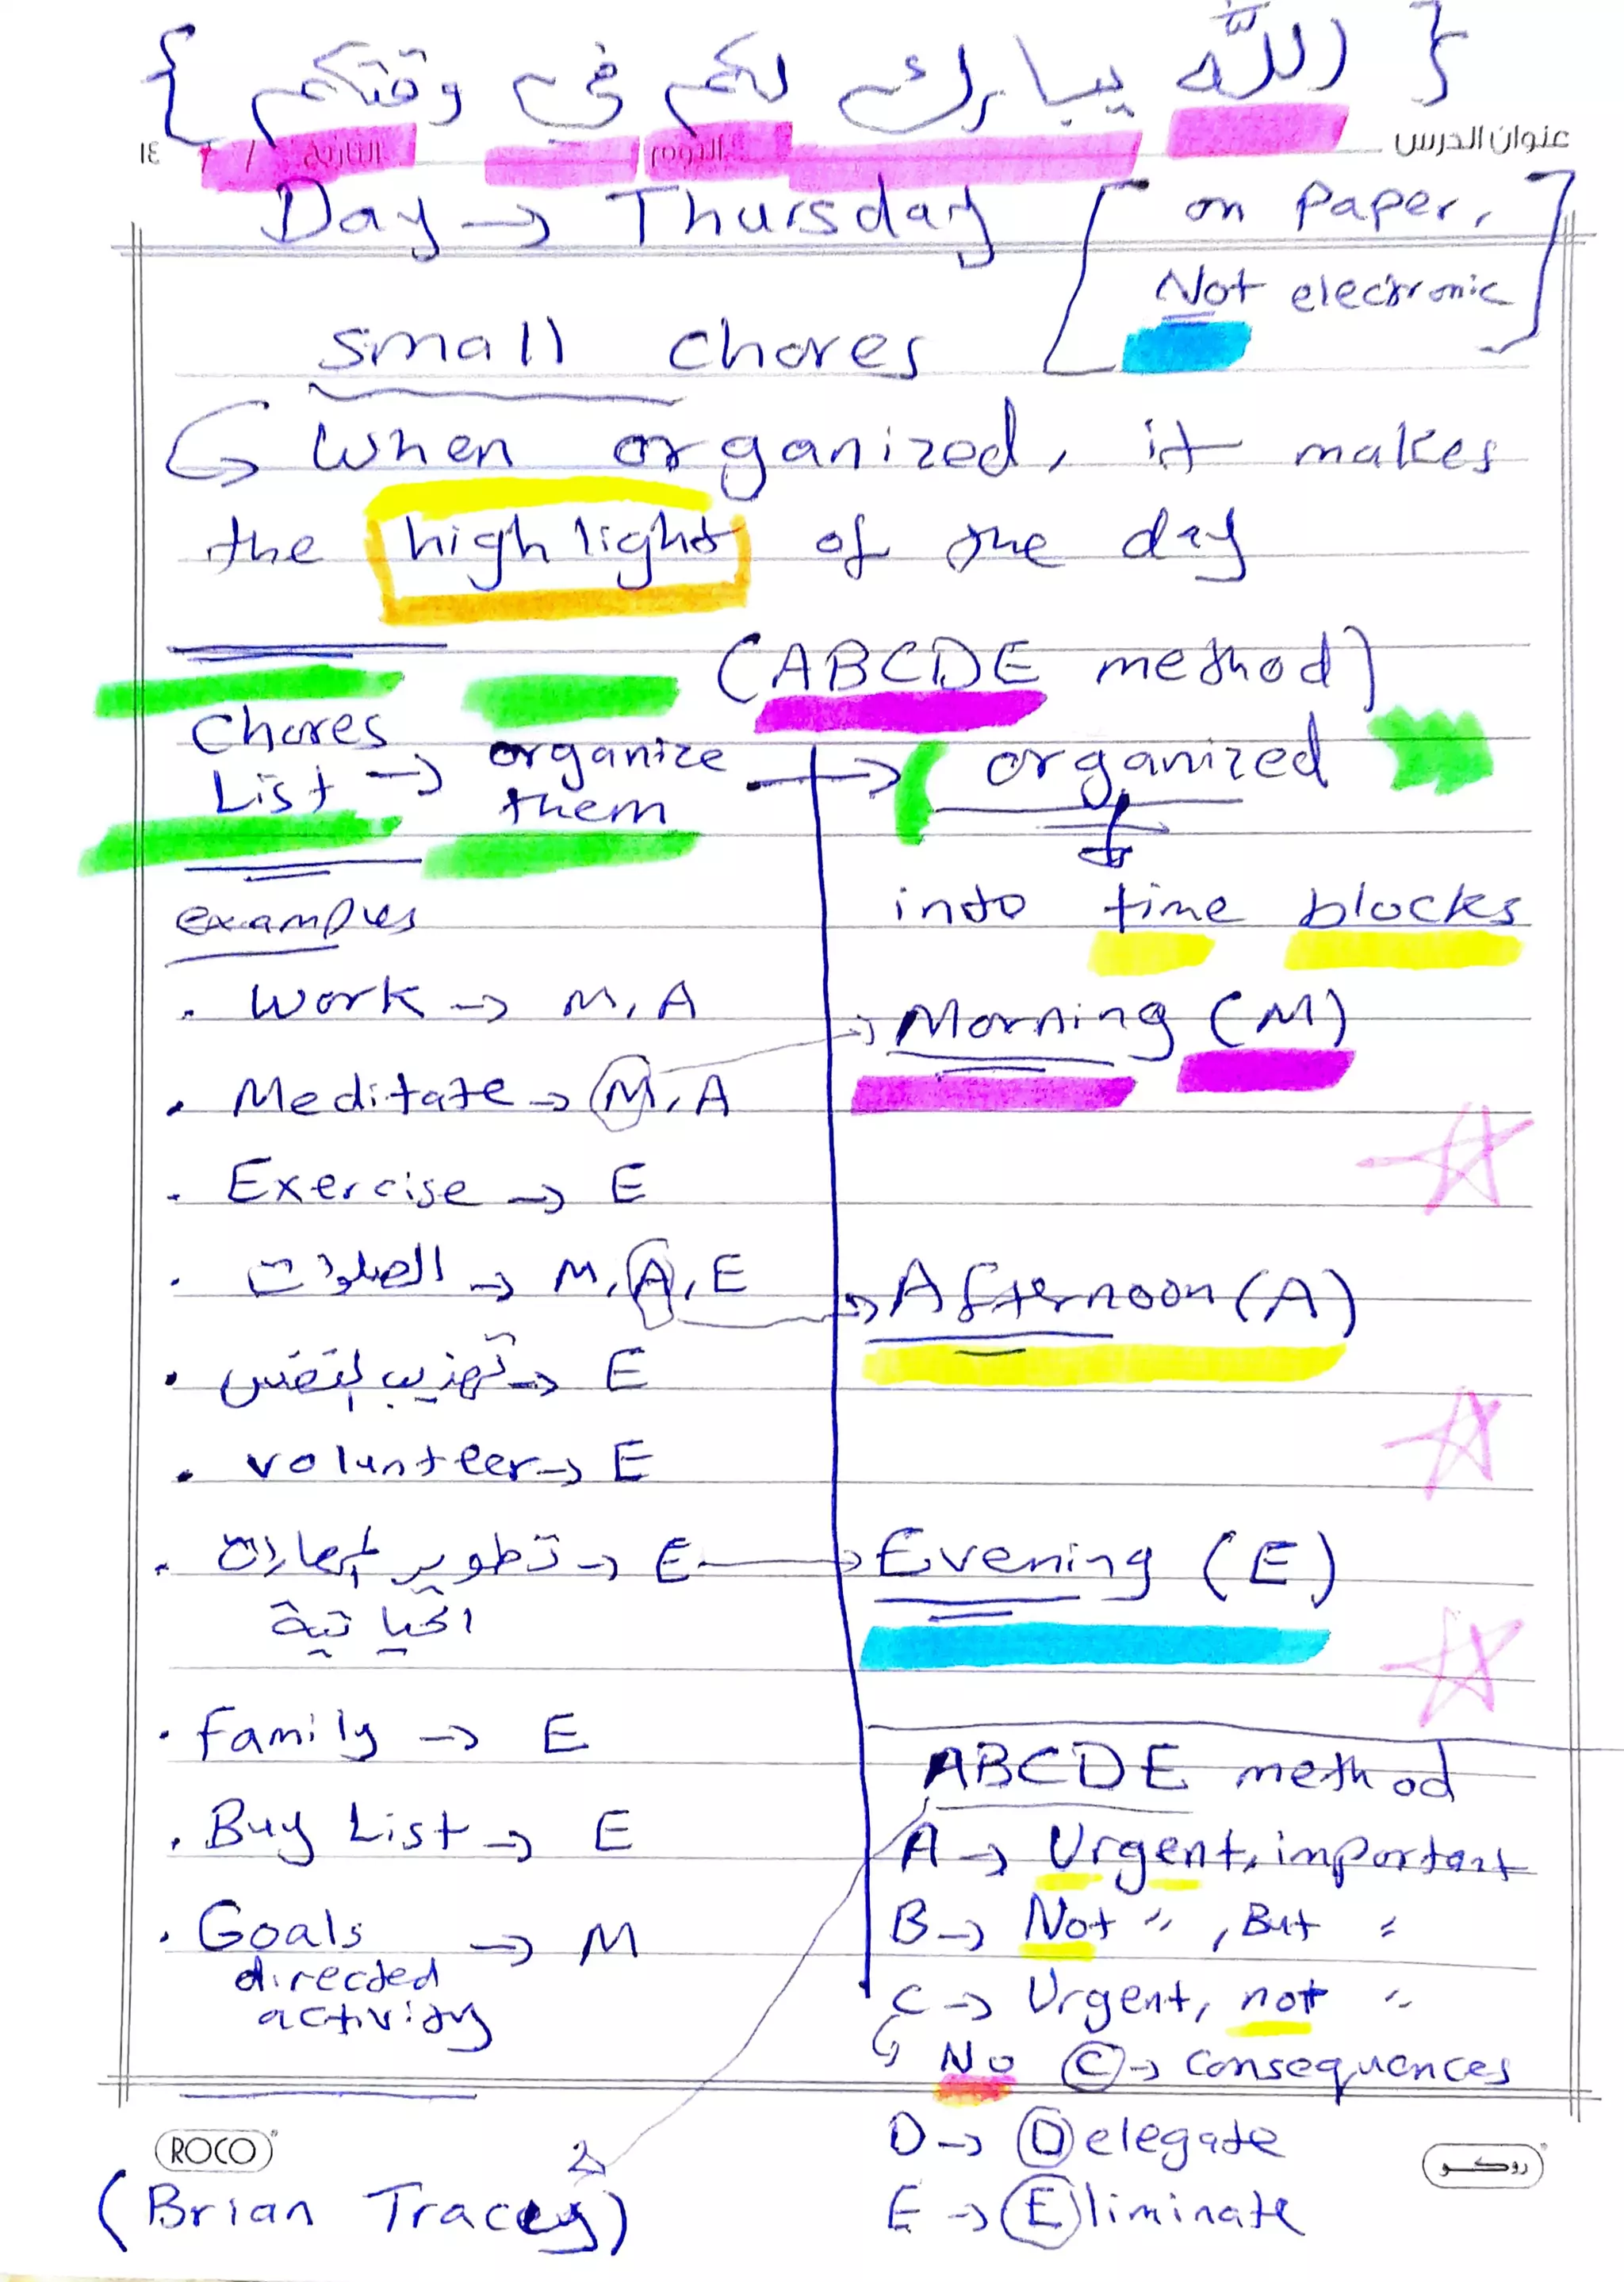 { الله يبارك لكم في وقتكم }
عنوان الدرس اليوم التاريخ / / ١٤
Day → Thursday [on Paper,
Not electronic]
small chores
↳ When organized, it makes
the highlight of the day
(ABCDE method)
Chores List → organize them → organized
into time blocks
examples
• Work → M, A
• Meditate → M, A
• Exercise → E
• الصلوات → M, A, E
• تهذيب النفس → E
• volunteer → E
• تطوير المهارات → E
الحياتية
• Family → E
• Buy List → E
• Goals → M
directed
activity
→ Morning (M)
→ Afternoon (A)
→ Evening (E)
ABCDE method
A → Urgent, important
B → Not " , But "
C → Urgent, not "
↳ No C → consequences
D → Delegate
E → Eliminate
ROCO
روكو
(Brian Tracey)